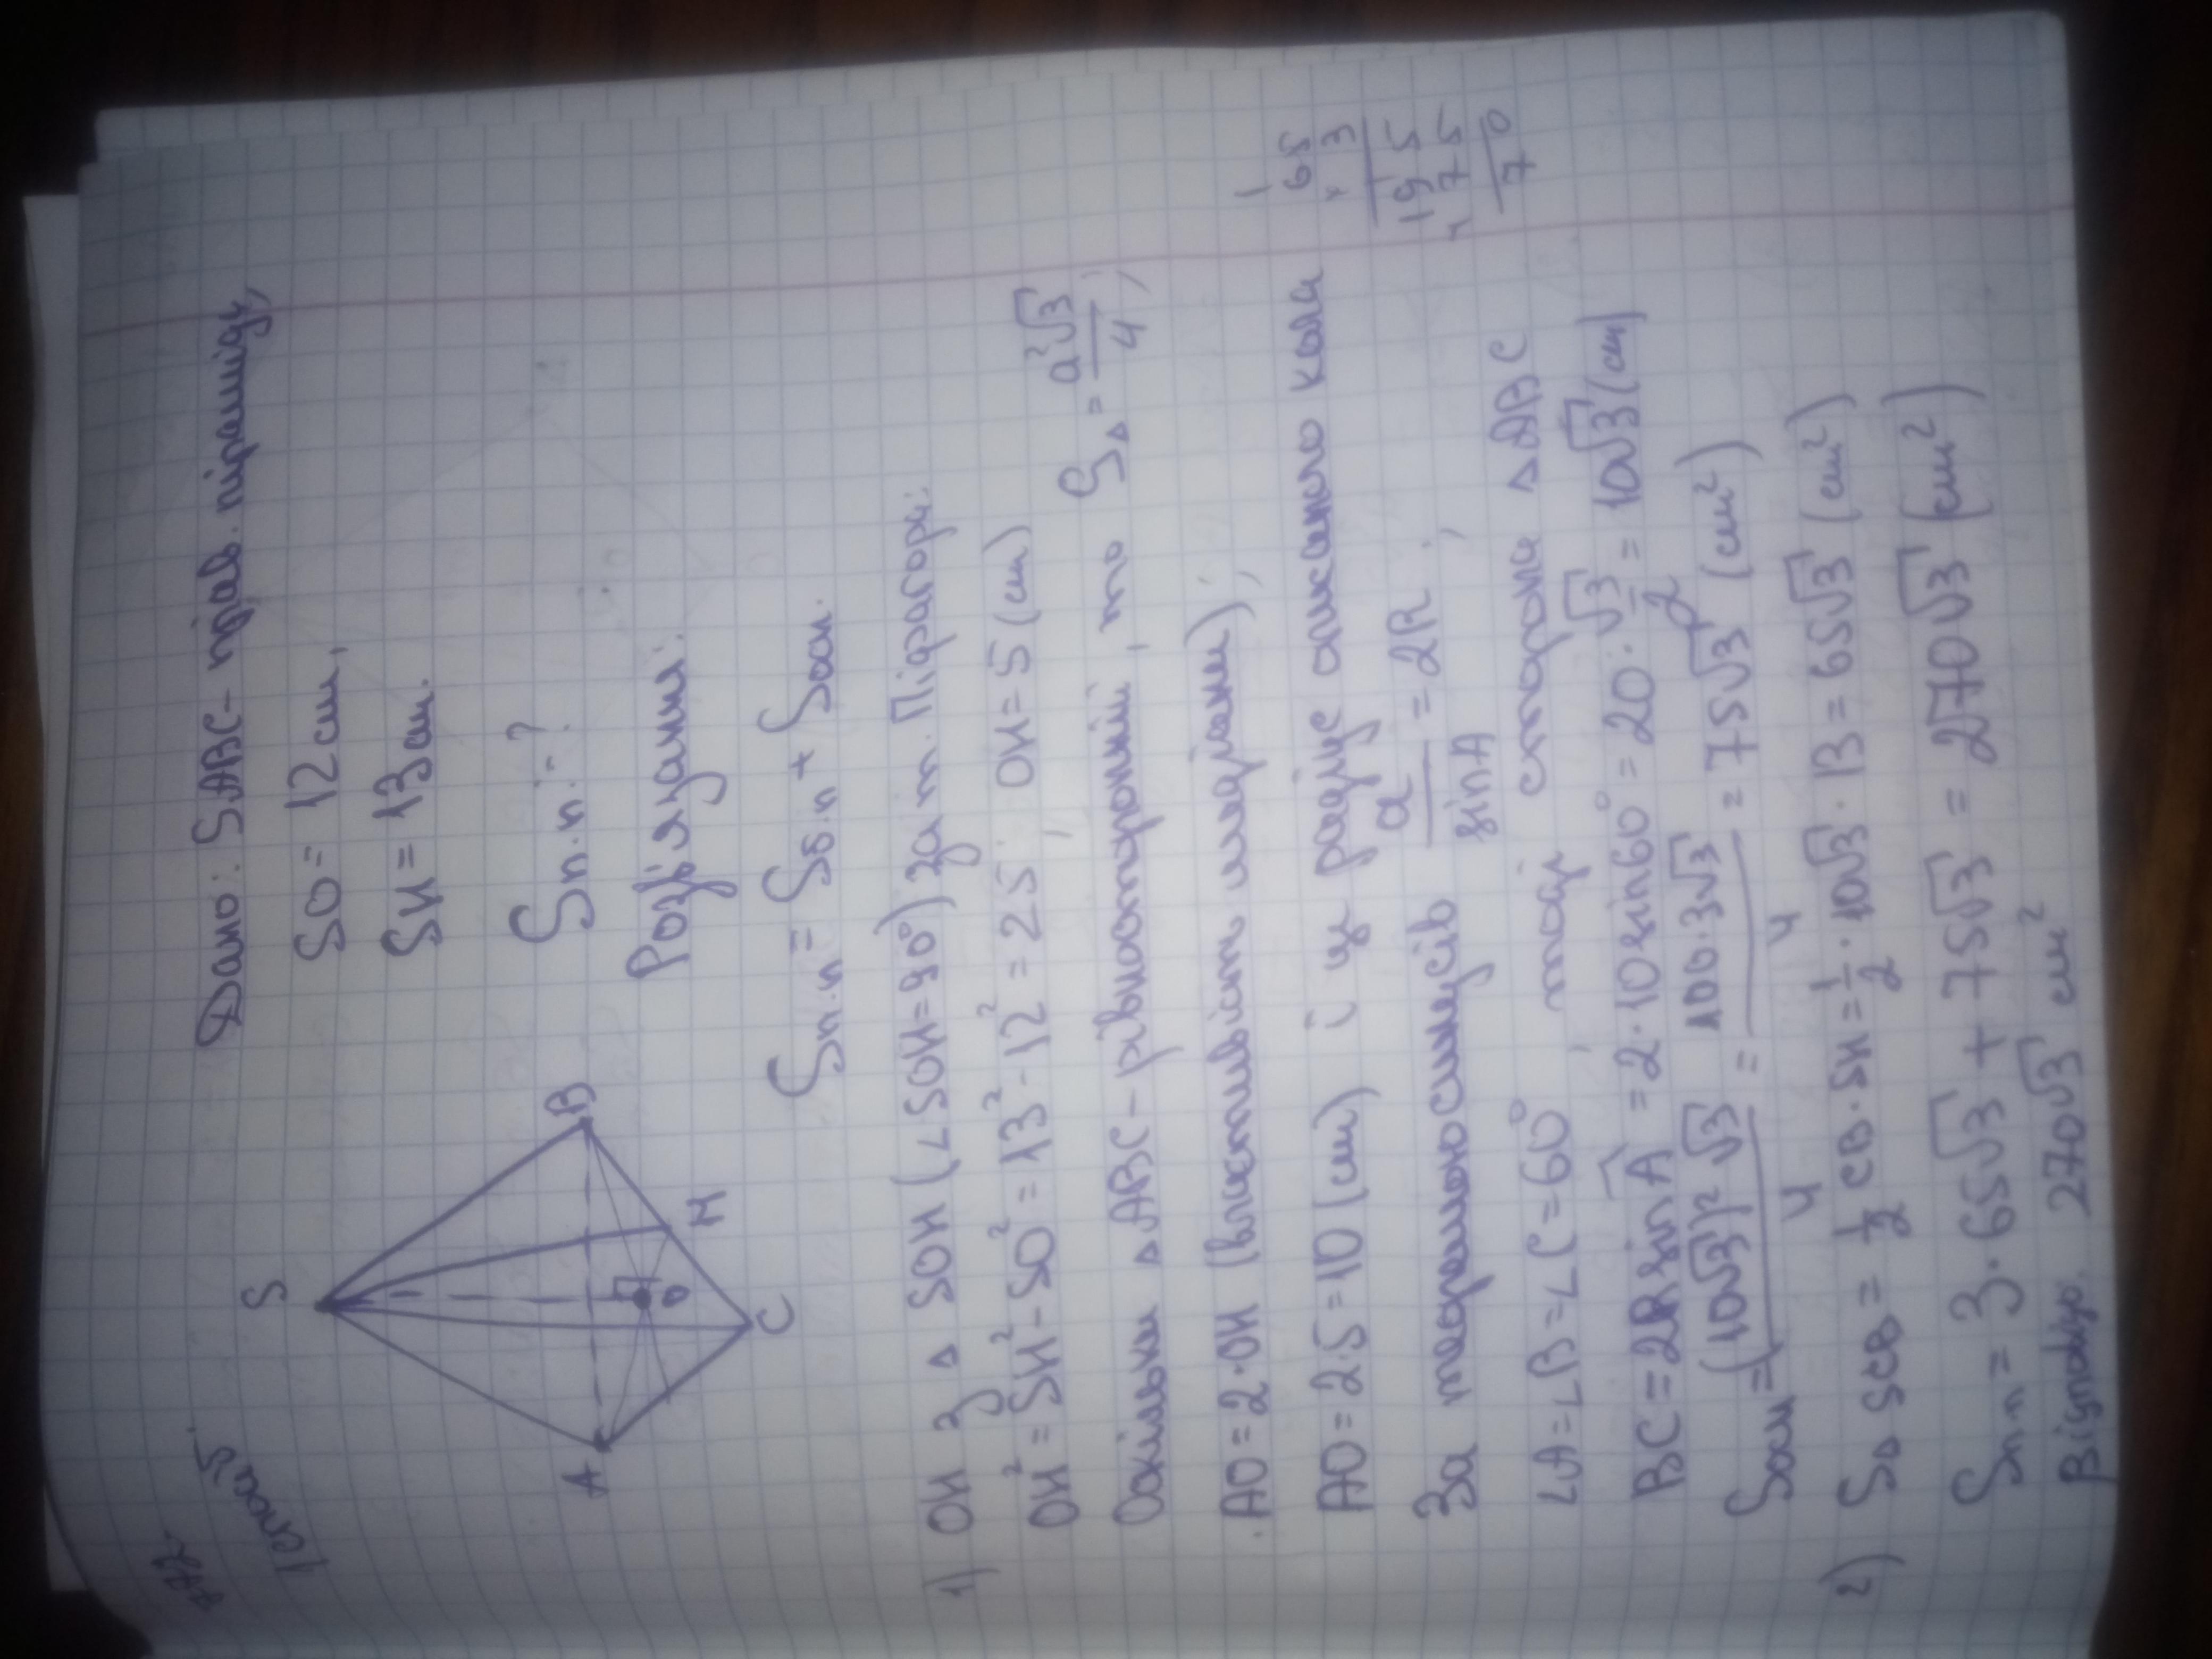 1 спосіб.
Дано: SABC - прав. піраміда,
SO = 12 см,
SH = 13 см.
Sп.п. - ?
Розв'язання:
S
A
B
C
H
O
Sп.п = Sб.п + Sосн.
1) OH з △ SOH (∠SOH = 90°) за т. Піфагора:
OH² = SH² - SO² = 13² - 12² = 25; OH = 5 (см)
Оскільки △ABC - рівносторонній, то S△ = a²√3/4;
AO = 2·OH (властивість медіани);
AO = 2·5 = 10 (см) і це радіус описаного кола
За теоремою синусів a/sinA = 2R;
∠A = ∠B = ∠C = 60°, тоді сторона △ABC
BC = 2R sin A = 2·10 sin 60° = 20·√3/2 = 10√3 (см)
Sосн = (10√3)²√3/4 = 100·3√3/4 = 75√3 (см²)
2) S△ SCB = 1/2 CB·SH = 1/2·10√3·13 = 65√3 (см²)
Sп.п = 3·65√3 + 75√3 = 270√3 (см²)
Відповідь. 270√3 см²
1
65
× 3
195
+ 75
70